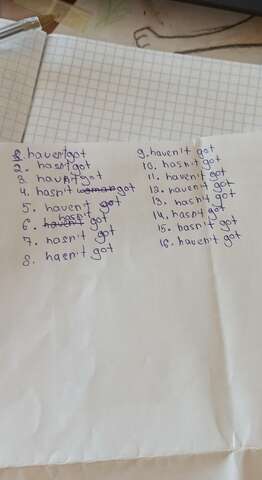 1. haven't got
2. hasn't got
3. haven't got
4. hasn't woman got
5. haven't got
6. haven't hasn't got
7. hasn't got
8. haen't got
9. haven't got
10. hasn't got
11. haven't got
12. haven't got
13. hasn't got
14. hasn't got
15. hasn't got
16. haven't got